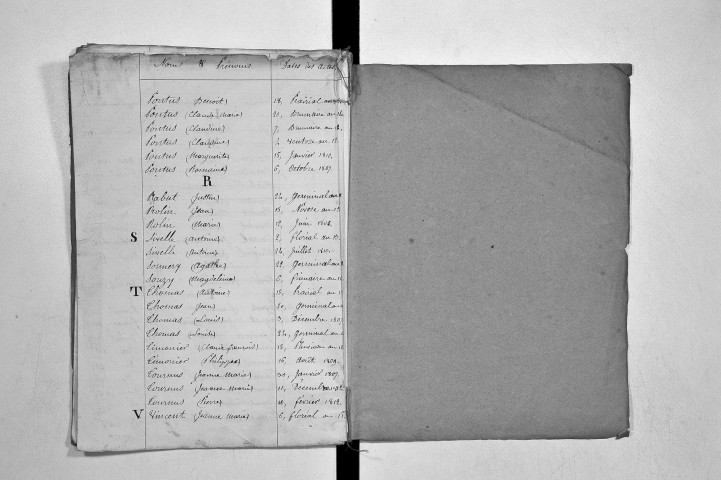 Noms & Prénoms Dates des actes
Pontus (Benoit) 28, Prairial
Pontus (Claude Marie) 20, Brumaire an
Pontus (Claudine) 7, Brumaire an 12,
Pontus (Claudine) 2, ventose an 12
Pontus (Marguerite) 15, Janvier 1810,
Pontus (Romaine) 6, Octobre 1807.
R
Rabut (Justin) 24, germinal an
Rolin (Jean) 18, Nivose an 12
Rolin (Marie) 12, Juin 1808.
S Sivelle (antoine) 2, floréal an 12.
Sivelle (Antoine) 26, Juillet
Sonnery (Agathe) 22, germinal an
Souzy (Magdeleine) 6, frimaire an 12
T Thomas (Antoine) 15, Prairial an 12
Thomas (Jean) 20, germinal an
Thomas (Louis) 3, Décembre 180
Thomas (Louise) 24, germinal an
Timonier (Claude françois) 18, an 12
Timonier (Philippe) 16, août 1809.
Tournus (Jeanne Marie) 30, Janvier 1807.
Tournus (Jeanne Marie) 11, Décembre
Tournus (Pierre) février 1812.
V Vincent (Jeanne Marie) 6, floréal an 12.